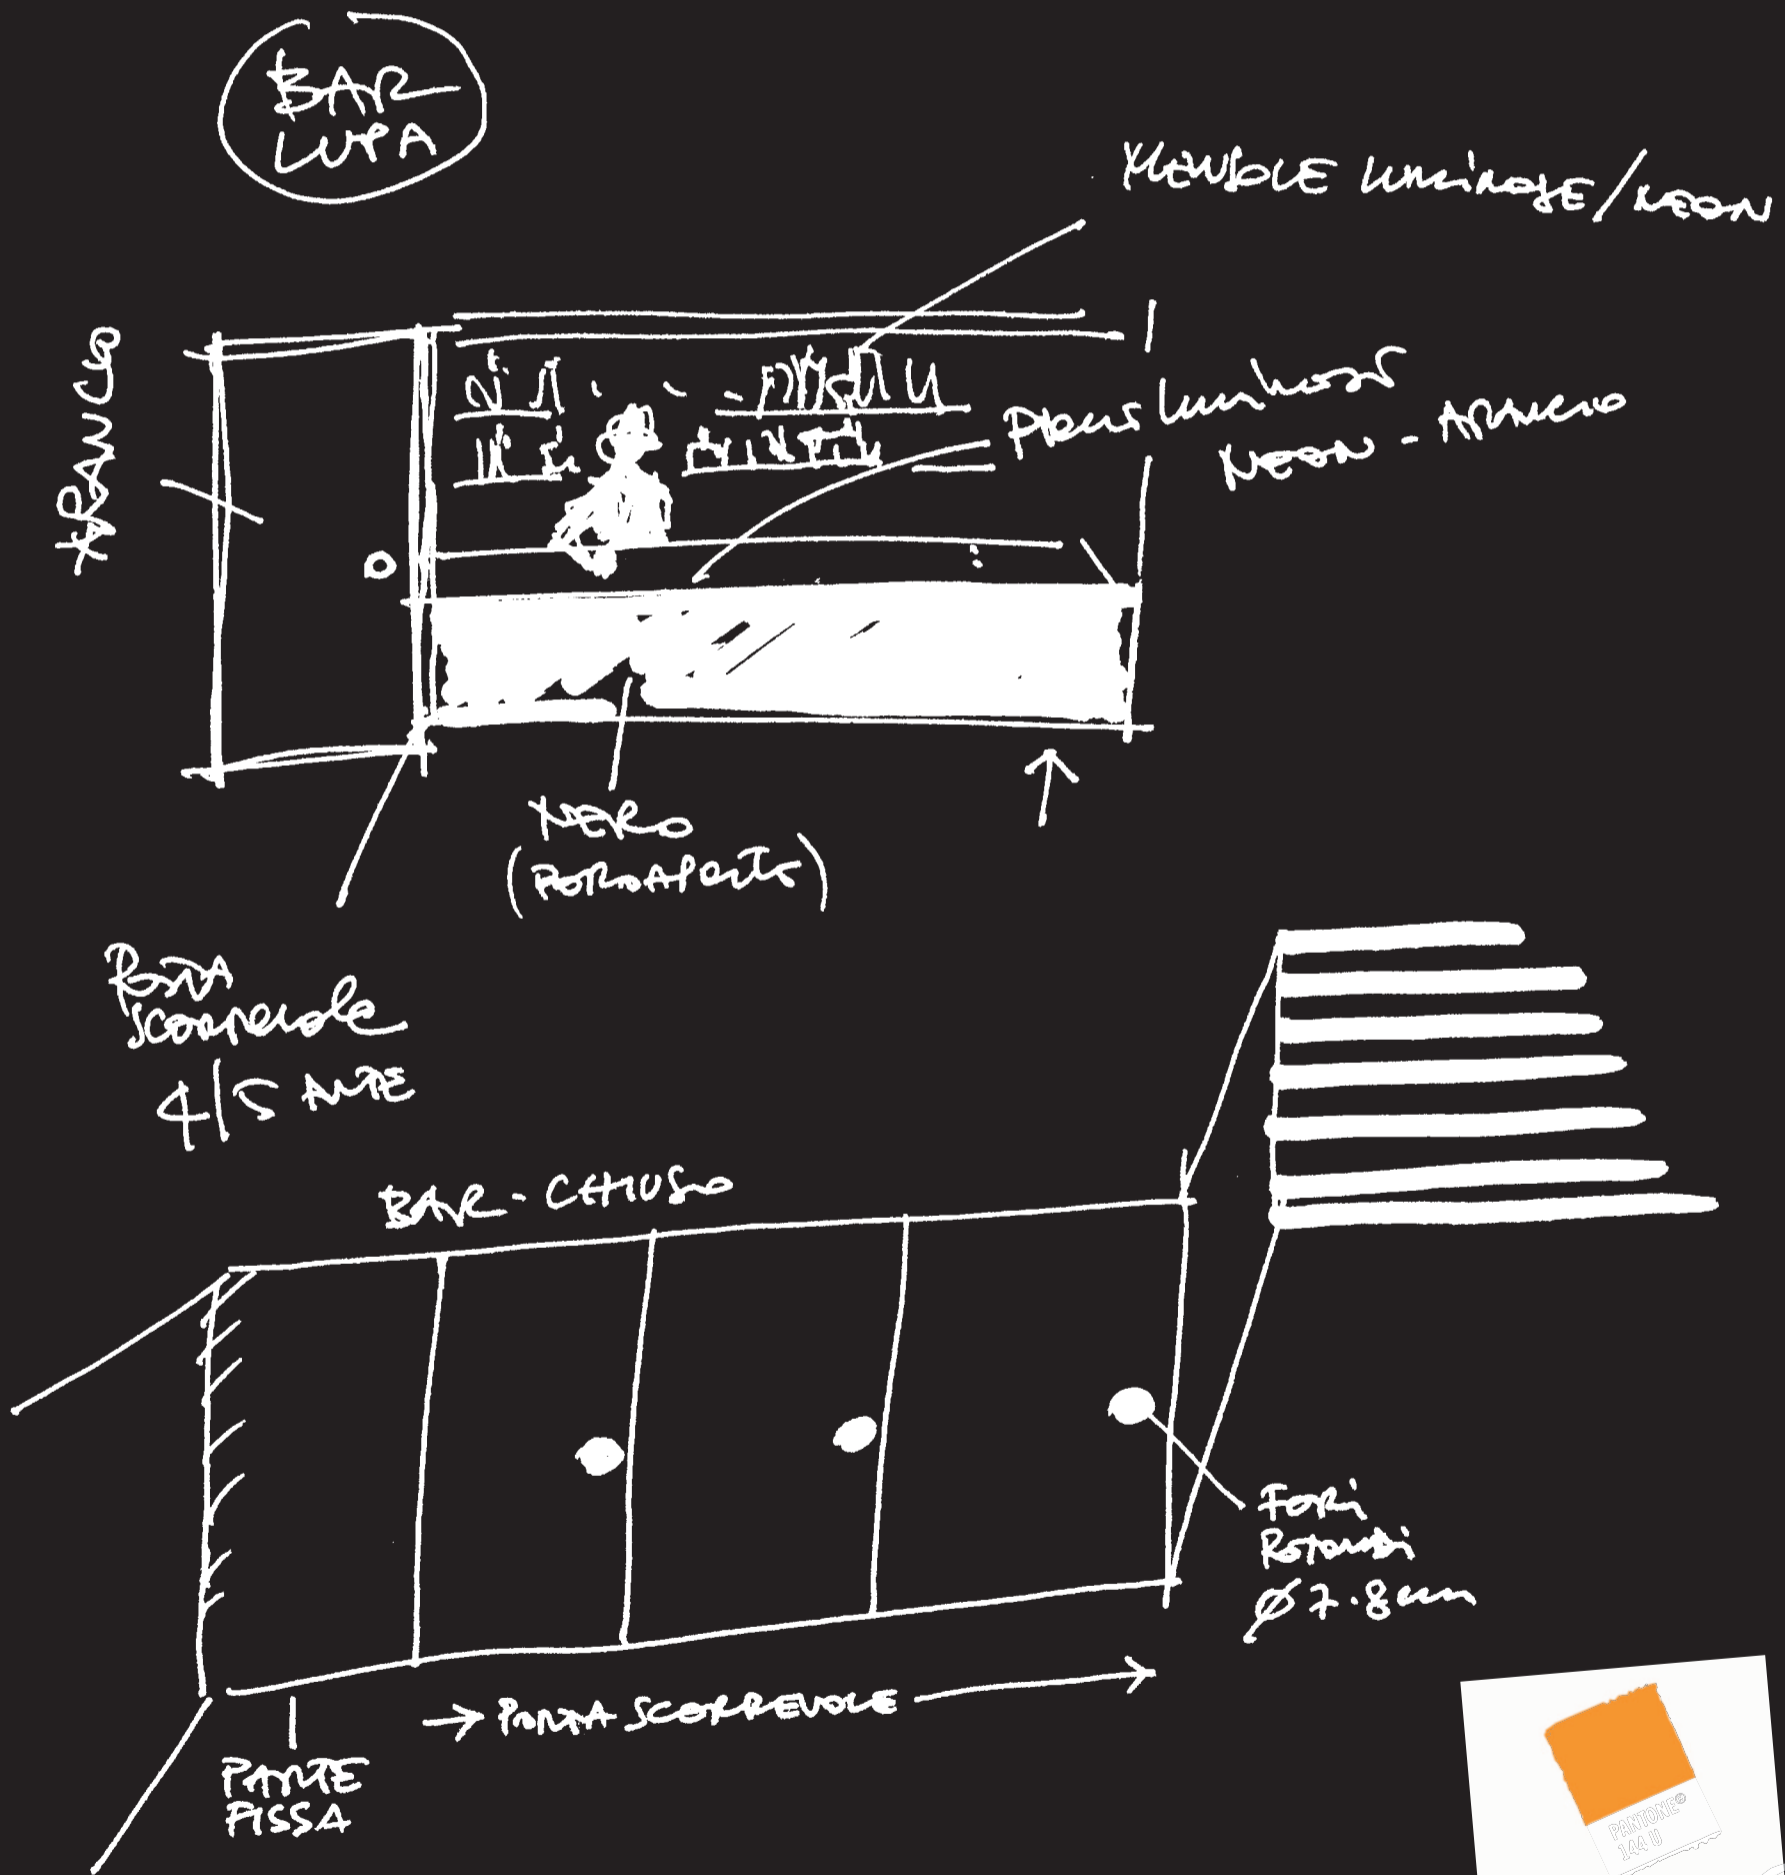 BAR
LUPA
MENSOLE LUMINOSE/NEON
ARANCIO
PIANI LUMINOSI
NEON - ARANCIO
NERO
(PORTA APERTA)
PORTA
SCORREVOLE
4/5 ANTE
BAR - CHIUSO
FORI
ROTONDI
Ø 7.8 cm
→ PORTA SCORREVOLE →
PARTE
FISSA
PANTONE®
144 U